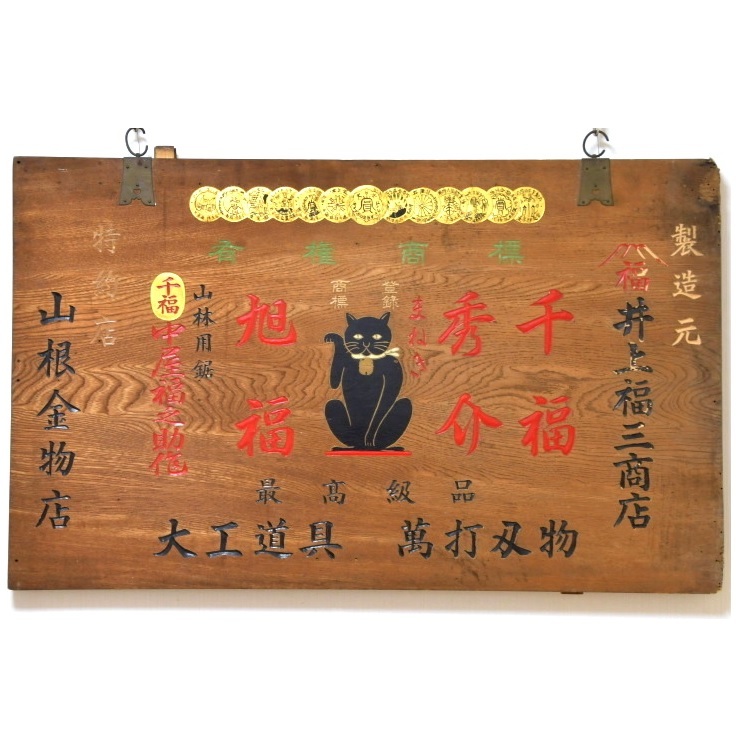 有権商標
製造元
福
井上福三商店
千福
秀介
まねき
登録
商標
旭福
山林用鋸
千福
中屋福之助作
特約店
山根金物店
最高級品
大工道具 萬打刄物